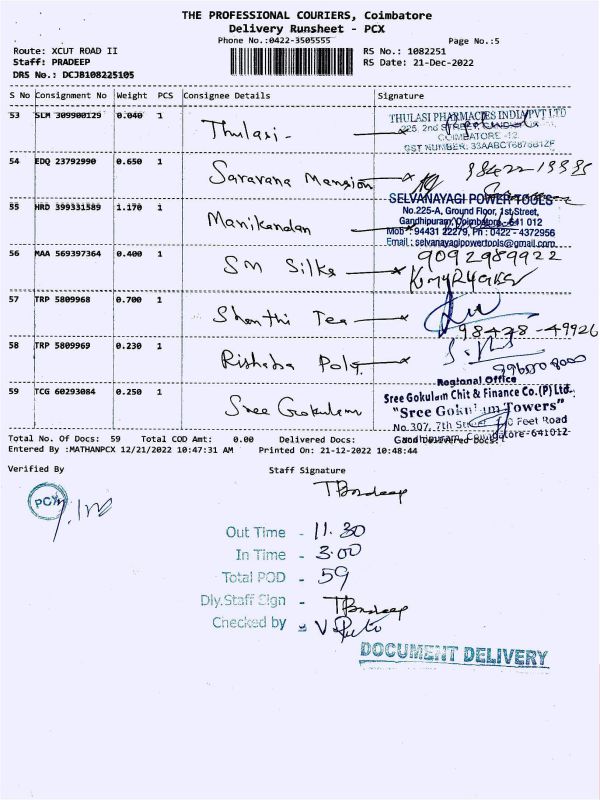 THE PROFESSIONAL COURIERS, Coimbatore
Delivery Runsheet - PCX
Phone No.:0422-3505555
Page No.:5
Route: XCUT ROAD II
RS No.: 1082251
Staff: PRADEEP
RS Date: 21-Dec-2022
DRS No.: DCJB108225105
S No Consignment No Weight PCS Consignee Details Signature
53 SLM 309900129 0.040 1 Thulasi -
THULASI PHARMACIES INDIA PVT LTD
225, 2nd STREET
COIMBATORE -12.
GST NUMBER: 33AABCT6676B1ZF
54 EDQ 23792990 0.650 1 Saravana Mansion
55 HRD 399331589 1.170 1 Manikandan
SELVANAYAGI POWER TOOLS
No.225-A, Ground Floor, 1st Street,
Gandhipuram, Coimbatore-641 012
Mob : 94431 22279, Ph : 0422 - 4372956
Email : selvanayagipowertools@gmail.com
56 MAA 569397364 0.400 1 SM Silks
9092989922
57 TRP 5809968 0.700 1 Shanthi Tea
98478-49926
58 TRP 5809969 0.230 1 Rishaba Poly
59 TCG 60293084 0.250 1 Sree Gokulam
Regional Office
Sree Gokulam Chit & Finance Co.(P) Ltd.
"Sree Gokulam Towers"
No. 307, 7th Street Feet Road
Gandhipuram, Coimbatore-641012
Total No. Of Docs: 59 Total COD Amt: 0.00 Delivered Docs:
Entered By :MATHANPCX 12/21/2022 10:47:31 AM Printed On: 21-12-2022 10:48:44
Verified By
Staff Signature
PCX
TPradeep
Out Time - 11.30
In Time - 3.00
Total POD - 59
Dly.Staff Sign - TPradeep
Checked by
DOCUMENT DELIVERY